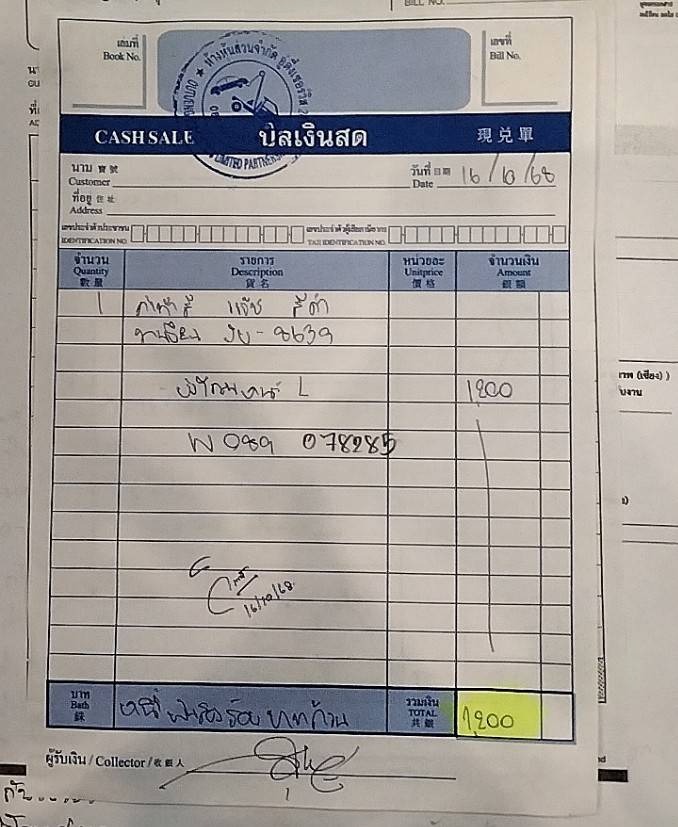 BILL NO.
เล่มที่
Book No.
เลขที่
Bill No.
ห้างหุ้นส่วนจำกัด
LIMITED PARTNERSHIP
CASH SALE บิลเงินสด 現兌單
นาม 寶號
Customer
วันที่ 日期
Date 16/10/68
ที่อยู่ 住址
Address
เลขประจำตัวประชาชน
IDENTIFICATION NO.
เลขประจำตัวผู้เสียภาษีอากร
TAX IDENTIFICATION NO.
จำนวน
Quantity
數量
รายการ
Description
貨名
หน่วยละ
Unitprice
價格
จำนวนเงิน
Amount
銀額
1 ค่าทำสี สีดำ
ทะเบียน 8639
L 1,200
089 078285
16/10/68
บาท
Bath
銖
รวมเงิน
TOTAL
共銀
1,200
หนึ่งพันสองร้อยบาทถ้วน
ผู้รับเงิน / Collector / 收銀人